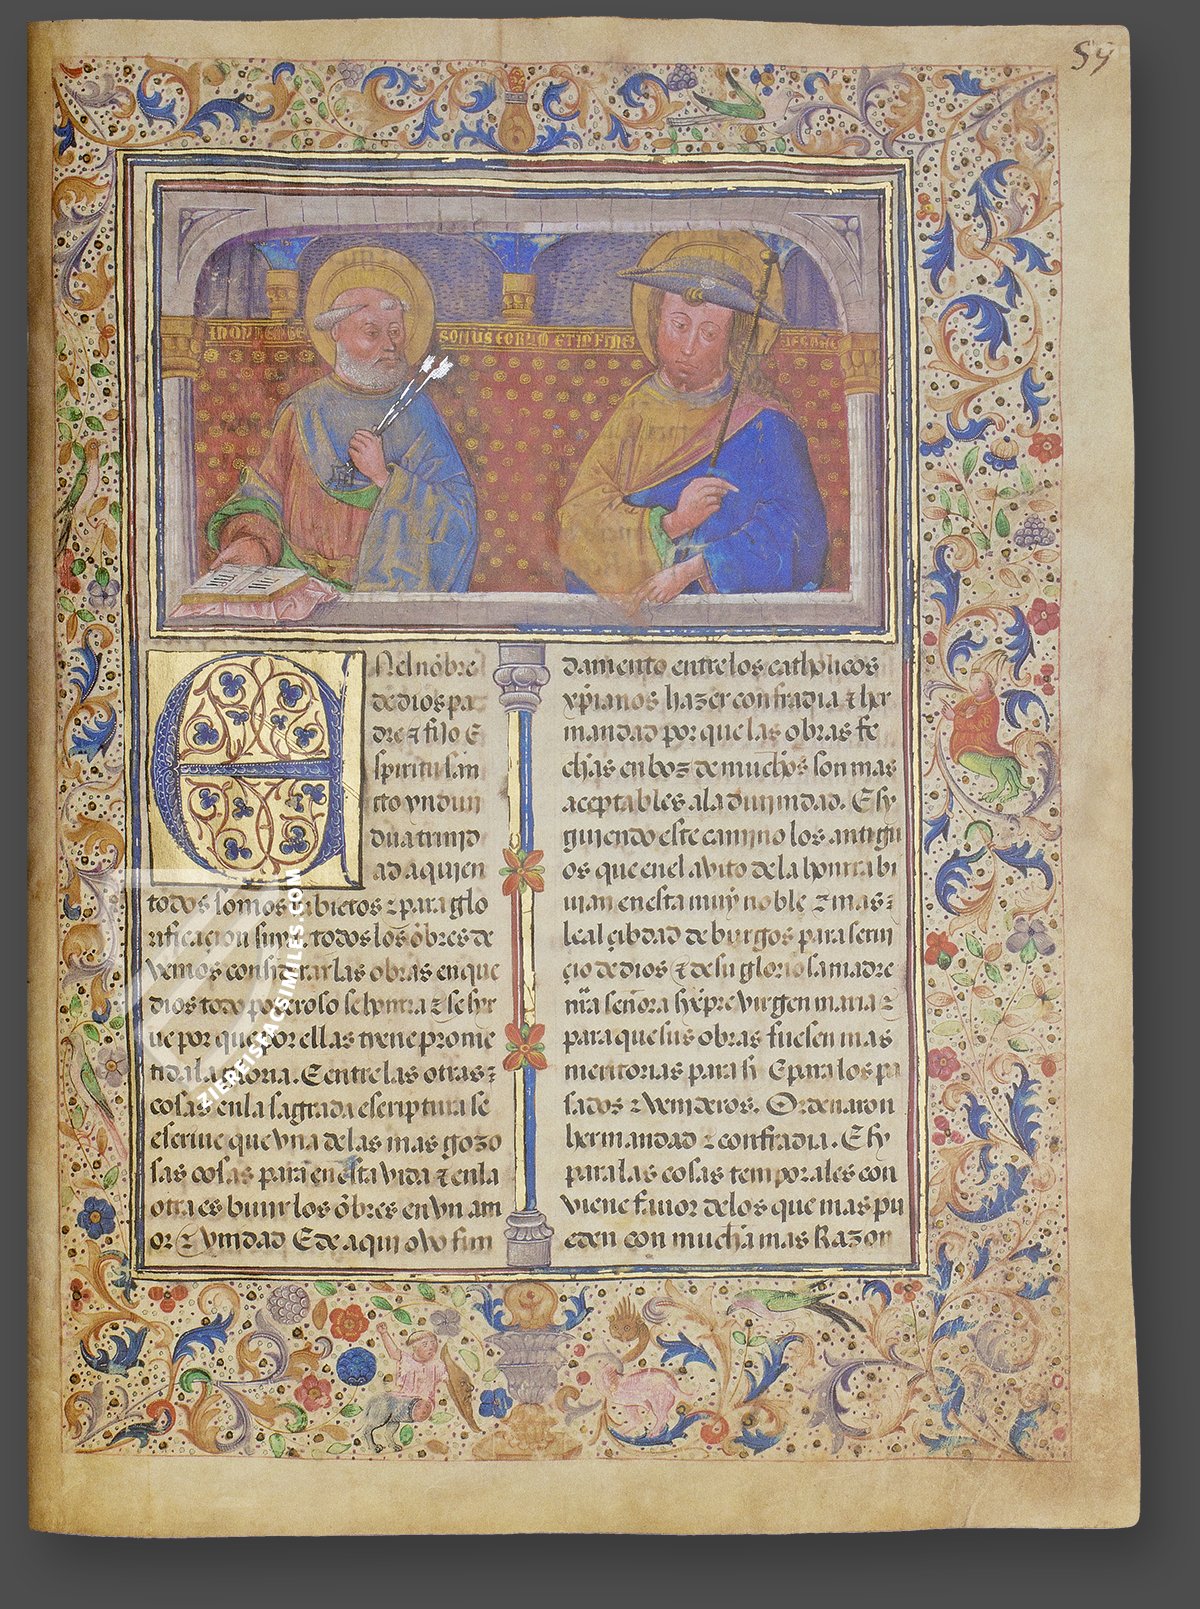 59
IN OMNEM
SONUS EORUM ET IN FINES
A
N el nõbre
de dios pa
dre ⁊ fijo E
spiritu san
cto vn diui
dua trinid
ad a quien
todos somos subietos ⁊ para glo
rificacion suya todos los õbres de
vemos considerar las obras en que
dios todo poderoso se hontra ⁊ se syr
ue por que por ellas tyene prome
tida la gloria. E entre las otras ⁊
cosas en la sagrada escriptura se
escriue que vna de las mas gozo
sas cosas para en esta vida ⁊ en la
otra es biuir los õbres en vn am
or ⁊ vnidad E de aqui ovo fun
damento entre los catholicos
xp̃ianos hazer confradia ⁊ her
mandad por que las obras fe
chas en boz de muchos son mas
aceptables a la diuinidad. E sy
guiendo este camino los antigu
os que en el avito de la hontra bi
uian en esta muy noble ⁊ mas ⁊
leal çibdad de burgos para serui
çio de dios ⁊ de su gloriosa madre
nr̃a señora syẽpre virgen maria ⁊
para que sus obras fuesen mas
meritorias para sy E para los pa
sados ⁊ venideros. Ordenaron
hermandad ⁊ confradia. E sy
para las cosas temporales con
viene fauor de los que mas pu
eden con mucha mas Razon
ZIEREISFACSIMILES.COM